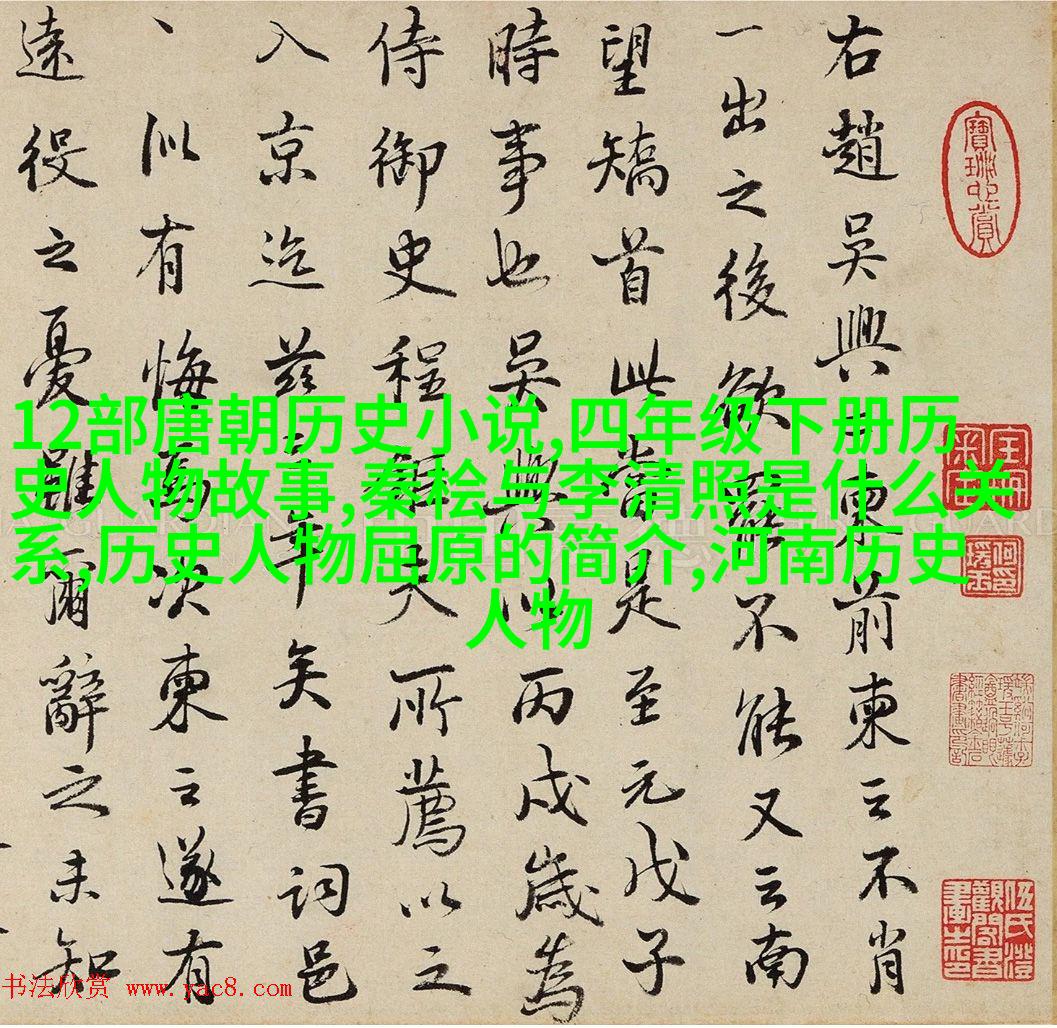 右趙吳興二柬前柬云不肖
一出之後欲罷不能又云南
望矯首此當是至元戊子
時事也吳興以丙戌歲為
侍御史程鉅夫所薦以之
入京迄茲三年矣書詞邑
、似有悔焉次柬云遂有
遠役之憂雖爾辭之未知
12部唐朝历史小说,四年级下册历
史人物故事,秦桧与李清照是什么关
系,历史人物屈原的简介,河南历史
人物
书法欣赏 www.yac8.com